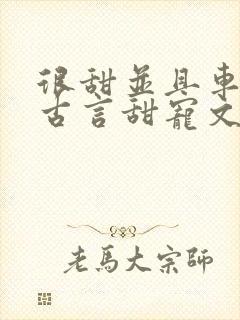 很甜並具專
古言甜寵文
老馬大宗師